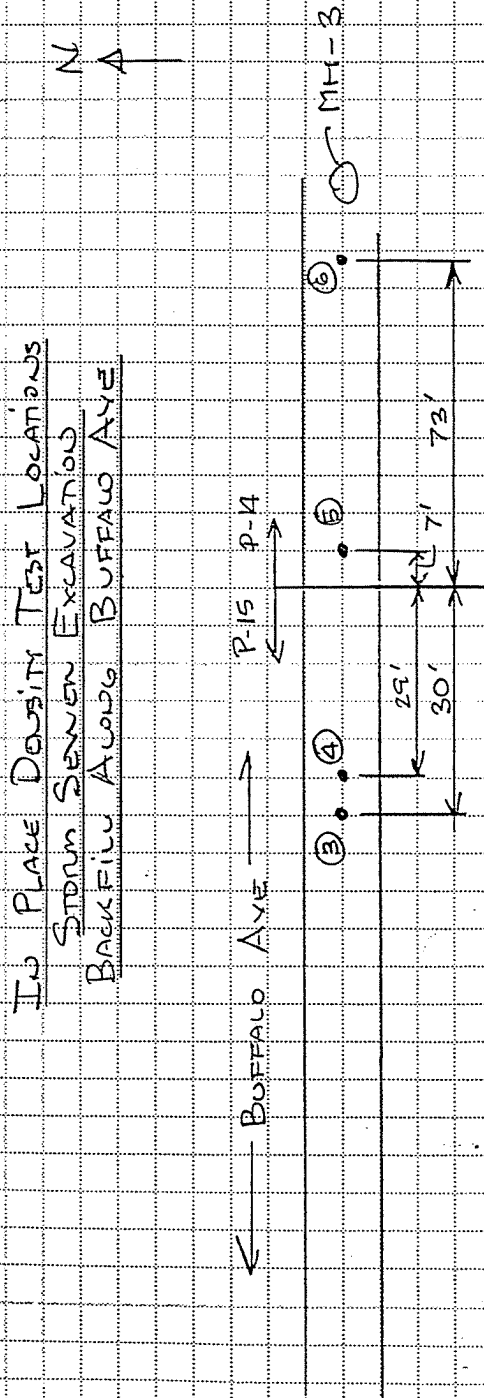 IN PLACE DENSITY TEST LOCATIONS
STORM SEWER EXCAVATION
BACKFILL ALONG BUFFALO AVE
N
BUFFALO AVE
P-15 P-14
③ ④ ⑤ ⑥
MH-3
29' 7'
30' 73'